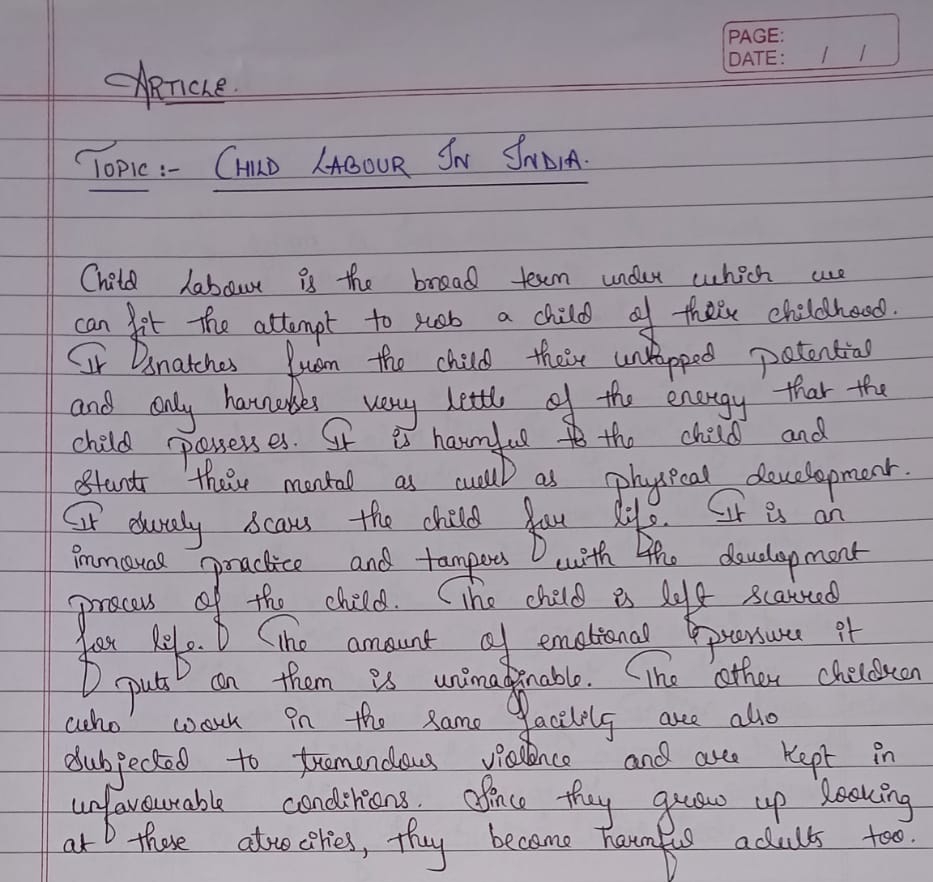 PAGE:
DATE: / /
ARTICLE.
TOPIC :- CHILD LABOUR IN INDIA.
Child Labour is the broad term under which we
can fit the attempt to rob a child of their childhood.
It snatches from the child their untapped potential
and only harnesses very little of the energy that the
child possesses. It is harmful to the child and
stunts their mental as well as physical development.
It surely scars the child for life. It is an
immoral practice and tampers with the development
process of the child. The child is left scarred
for life. The amount of emotional pressure it
puts on them is unimaginable. The other children
who work in the same facility are also
subjected to tremendous violence and are kept in
unfavourable conditions. Since they grow up looking
at these atrocities, they become harmful adults too.